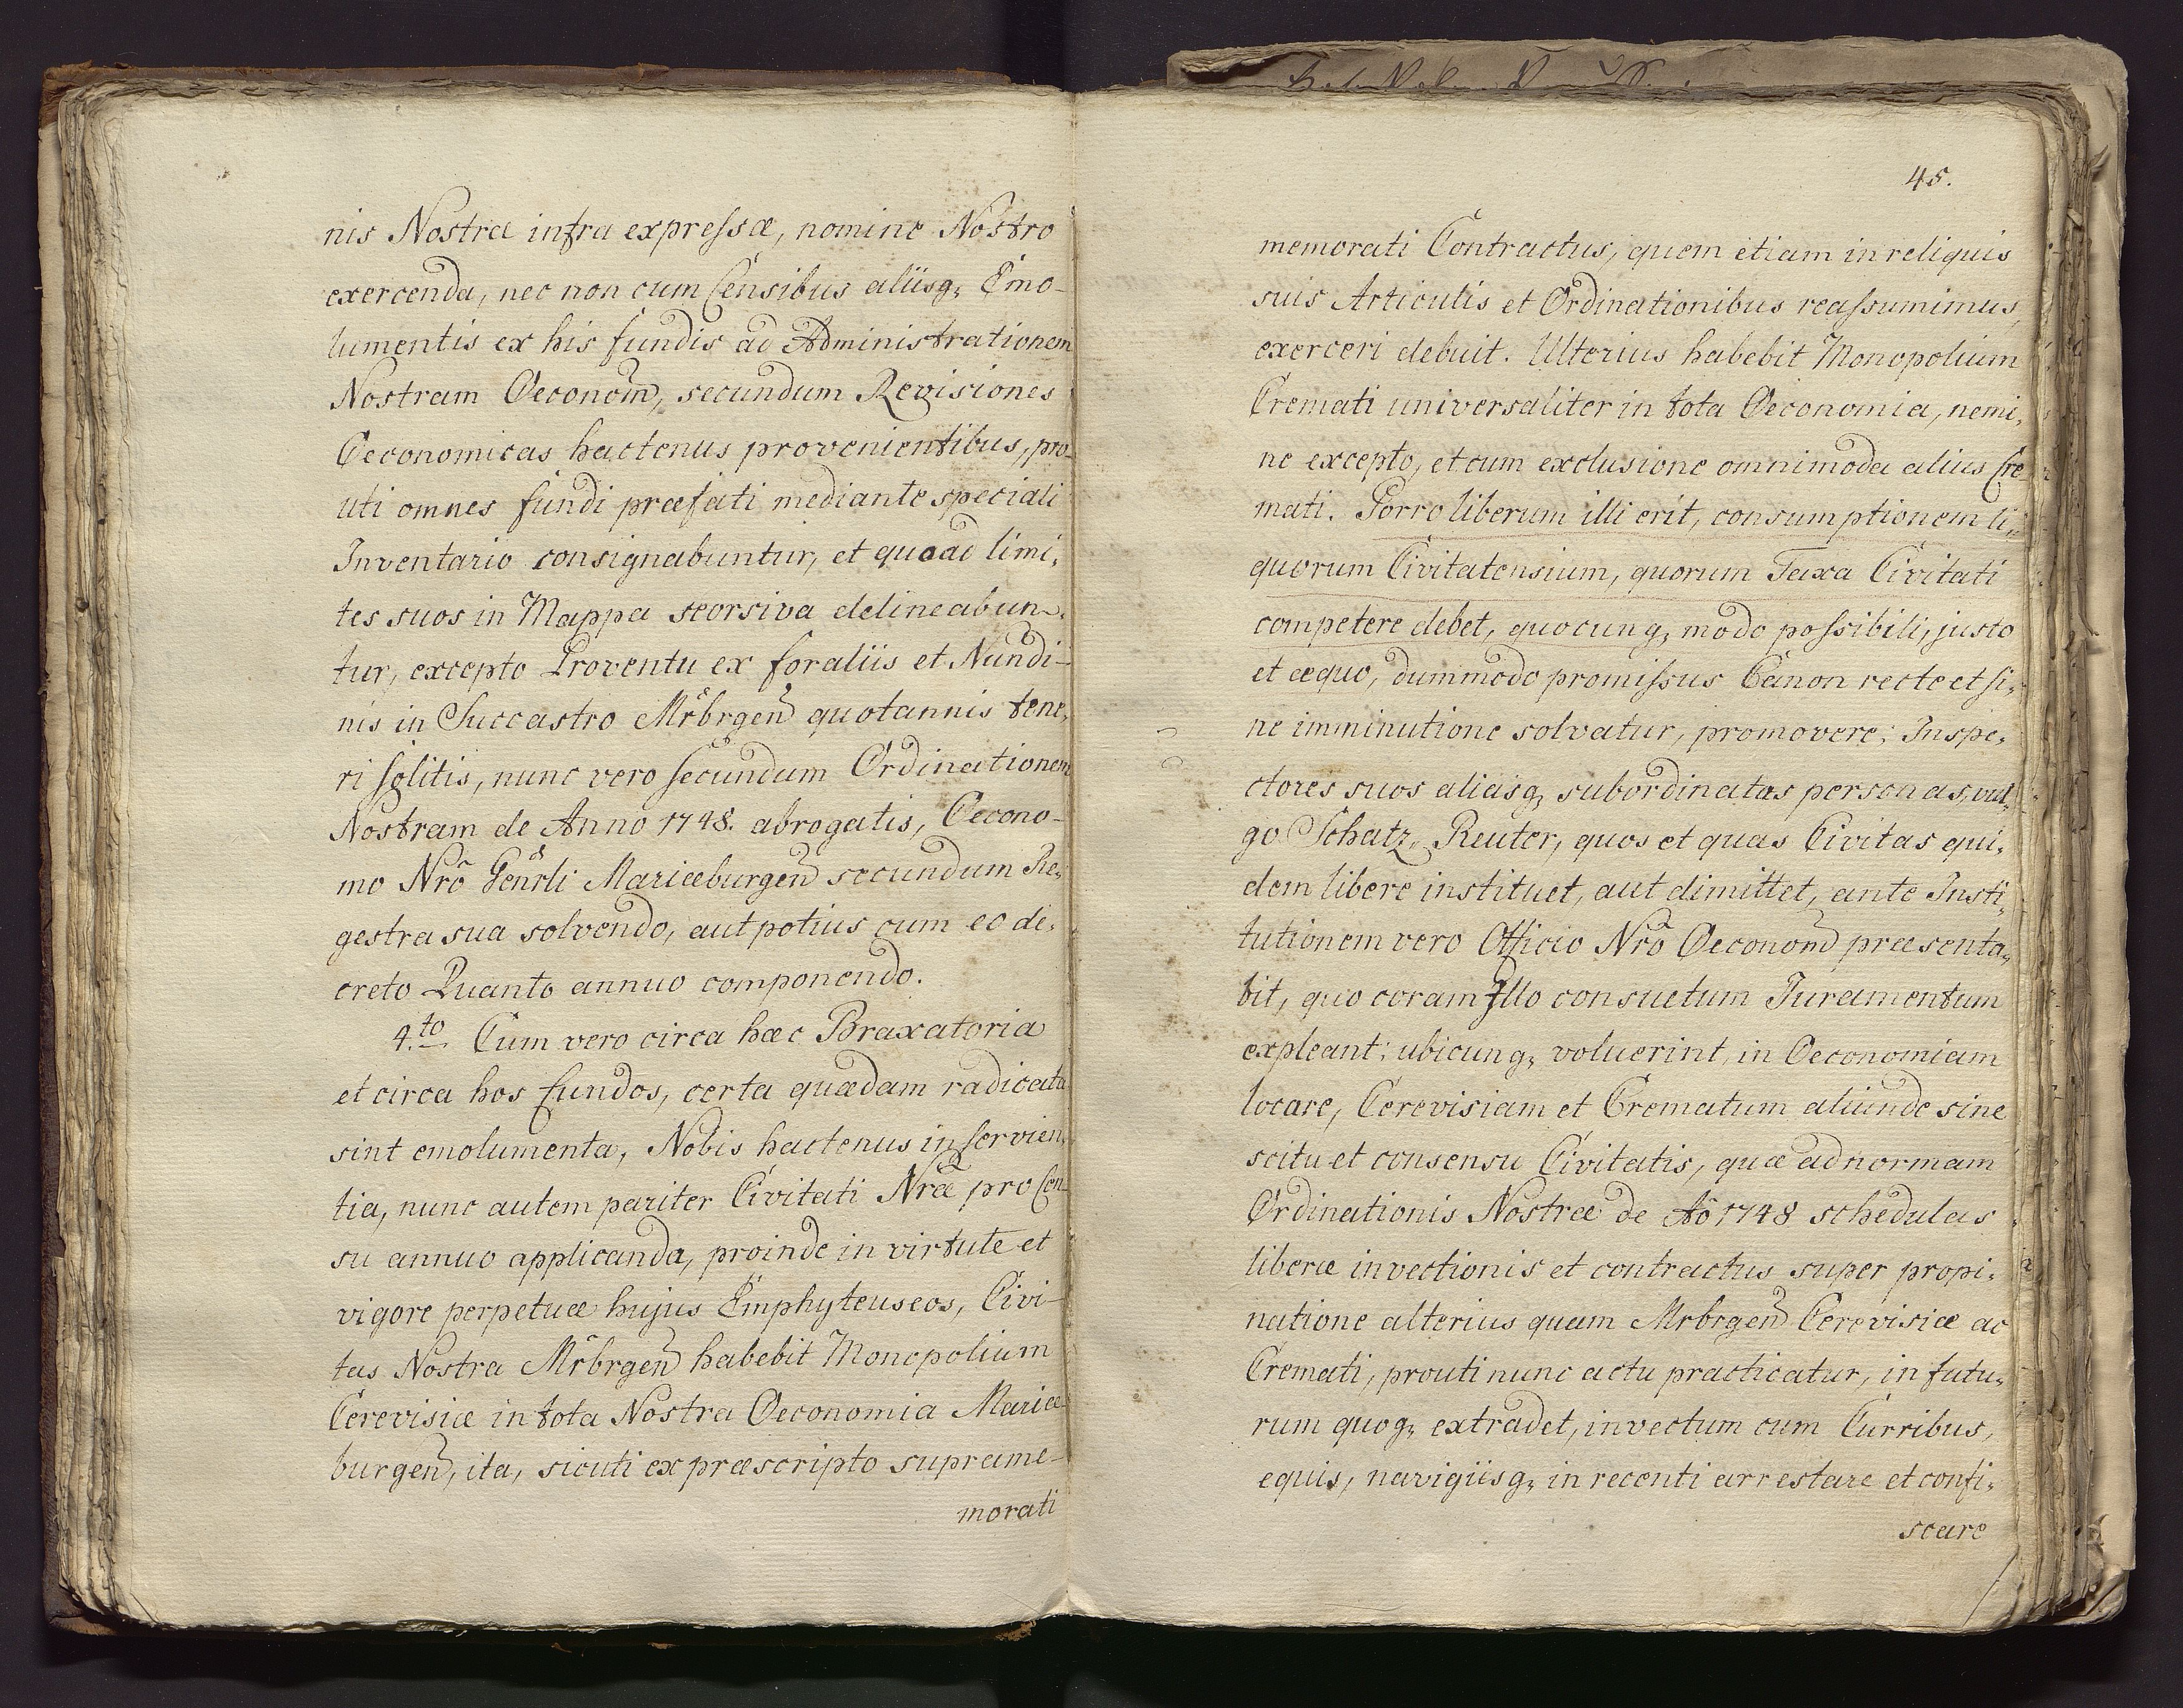 nis Nostræ infra expressæ, nomine Nostro
exercenda, nec non cum Censibus aliisq; Emo-
lumentis ex his fundis ad Administrationem
Nostram Oeconom̃, secundum Revisiones
Oeconomicas hactenus provenientibus, pro-
uti omnes fundi præfati mediante speciali
Inventario consignabuntur, et quoad limi-
tes suos in Mappa seorsiva delineabun-
tur, excepto Proventu ex foraliis et Nundi-
nis in Succastro Mrbrgen̄ quotannis tene-
ri solitis, nunc vero secundum Ordinationem
Nostram de Anno 1748. abrogatis, Oecono-
mo Nrõ Genrli Mariæburgen̄ secundum Re-
gestra sua solvendo, aut potius cum eo de-
creto Quanto annuo componendo.
4.to Cum vero circa hæc Braxatoria
et circa hos fundos, certa quædam radicata
sint emolumenta, Nobis hactenus inservien-
tia, nunc autem pariter Civitati Nræ pro Cen-
su annuo applicanda, proinde in virtute et
vigore perpetuæ hujus Emphyteuseos, Civi-
tas Nostra Mrbrgen̄ habebit Monopolium
Cerevisiæ in tota Nostra Oeconomia Mariæ-
burgen̄, ita, sicuti ex præscripto suprame-
morati
45.
memorati Contractus, quem etiam in reliquis
suis Articulis et Ordinationibus reassumimus,
exerceri debuit. Ulterius habebit Monopolium
Cremati universaliter in tota Oeconomia, nemi-
ne excepto, et cum exclusione omnimoda alius Cre-
mati. Porro liberum illi erit, consumptionem li-
quorum Civitatensium, quorum Taxa Civitati
competere debet, quocunq; modo possibili, justo
et æquo, dummodo promissus Canon recte et si-
ne imminutione solvatur, promovere; Inspe-
ctores suos aliasq; subordinatas personas, vul-
go Schatz-Reuter, quos et quas Civitas qui-
dem libere instituet, aut dimittet, ante Insti-
tutionem vero Officio Nrõ Oeconom̃ præsenta-
bit, quo coram Illo consuetum Juramentum
expleant; ubicunq; voluerint, in Oeconomiam
locare, Cerevisiam et Crematum aliunde sine
scitu et consensu Civitatis, quæ ad normam
Ordinationis Nostræ de Aõ 1748 schedulas
liberæ invectionis et contractus super propi-
natione alterius quam Mrbrgen̄ Cerevisiæ ac
Cremati, prouti nunc actu practicatur, in futu-
rum quoq; extradet, invectum cum Curribus,
equis, navigiisq; in recenti arrestare et confi-
scare